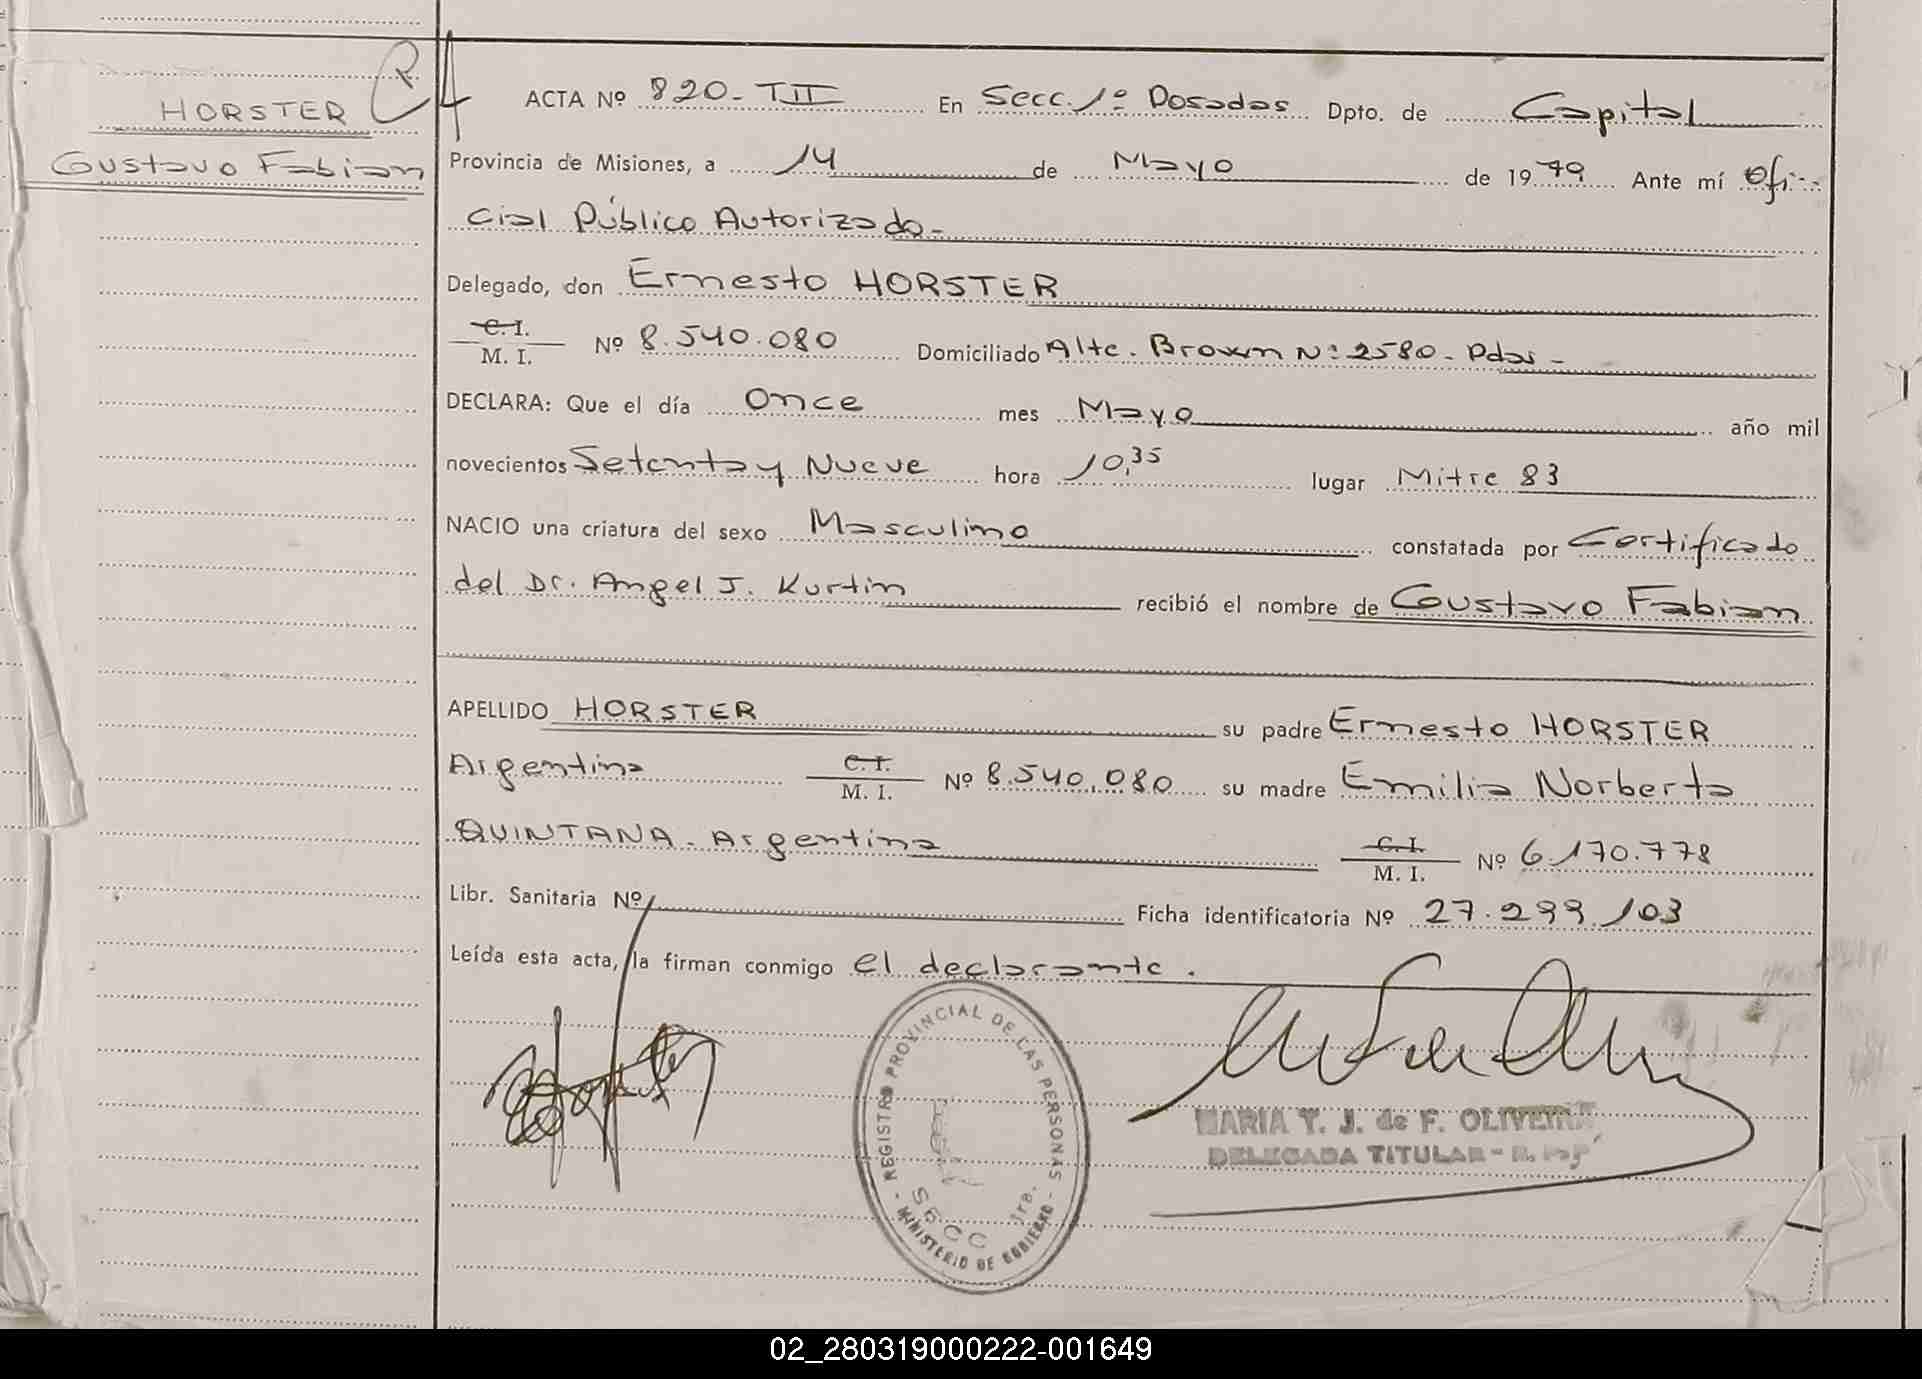 HORSTER
Gustavo Fabian
ACTA Nº 820-TII En Secc. 1º Posadas Dpto. de Capital
Provincia de Misiones, a 14 de Mayo de 1979 Ante mí Ofi-
cial Público Autorizado-
Delegado, don Ernesto HORSTER
C.I. / M. I. Nº 8.540.080 Domiciliado Alte. Brown Nº 2580- Pdas-
DECLARA: Que el día Once mes Mayo año mil
novecientos Setenta y Nueve hora 10,35 lugar Mitre 83
NACIO una criatura del sexo Masculino constatada por Certificado
del Dr. Angel J. Kurtin recibió el nombre de Gustavo Fabian
APELLIDO HORSTER su padre Ernesto HORSTER
Argentina C.I. / M. I. Nº 8.540.080 su madre Emilia Norberta
QUINTANA. Argentina C.I. / M. I. Nº 6.170.778
Libr. Sanitaria Nº Ficha identificatoria Nº 27.299.103
Leída esta acta, la firman conmigo el declarante.
REGISTRO PROVINCIAL DE LAS PERSONAS
SECC 1ra.
- MINISTERIO DE GOBIERNO -
MARIA T. J. de F. OLIVEIRA
DELEGADA TITULAR -
02_280319000222-001649